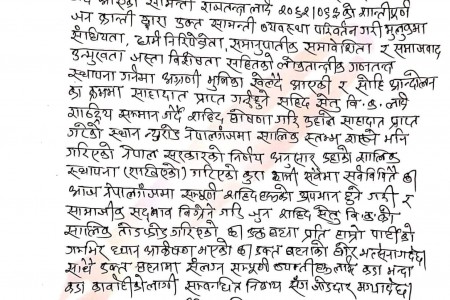 सामन्ती राजतन्त्र लाई २०६२/०६३को शान्तिपूर्ण
जन क्रान्ती द्वारा उक्त सामन्ती व्यवस्था परिवर्तन गरी मुलुकमा
संघियता, धर्म निरपेक्षता, समानुपातीक समावेशिता र समाजवाद
उन्मुखता जस्ता विशेषता सहितको लोकतान्त्रीक गणतन्त्र
स्थापना गर्नमा अग्रणी भुमिका खेल्दै आएकी र सोहि आन्दोलन
का क्रममा साहादात प्राप्त गर्नुहुने सहिद सेतु वि.क. लाई
राष्ट्रिय सम्मान गर्दै शहिद घोषणा गरि कहाँले साहादात प्राप्त
गरेको स्थान न्युरोड नेपालगंजमा सालिक स्तम्भ राख्ने भनि
गरिएको नेपाल सरकारको निर्णय अनुसार कहाको शालिक
स्थापना (राखिएको) गरिएको कुरा हामी सवैमा सर्वविदितै छ।
आज नेपालगंजमा सम्पूर्ण शहिदहरुको अपमान हुने गरी र
सामाजीक सद्भाव विग्रने गरि जुन शहिद सेतु वि.क.को
सालिक तोडफोड गरिएको छ। उक्त घटना प्रति हाम्रो पार्टीको
गम्भिर ध्यान आकर्षण भएको छ। उक्त घटनाको घोर भर्त्सना गर्दछ।
साथै उक्त घटनामा संलग्न सम्पूर्ण व्यक्तीहरुलाई कडा भन्दा
कडा कारवाहीको लागी सम्बन्धित निकाय संग जोडदार माग गर्दछ।